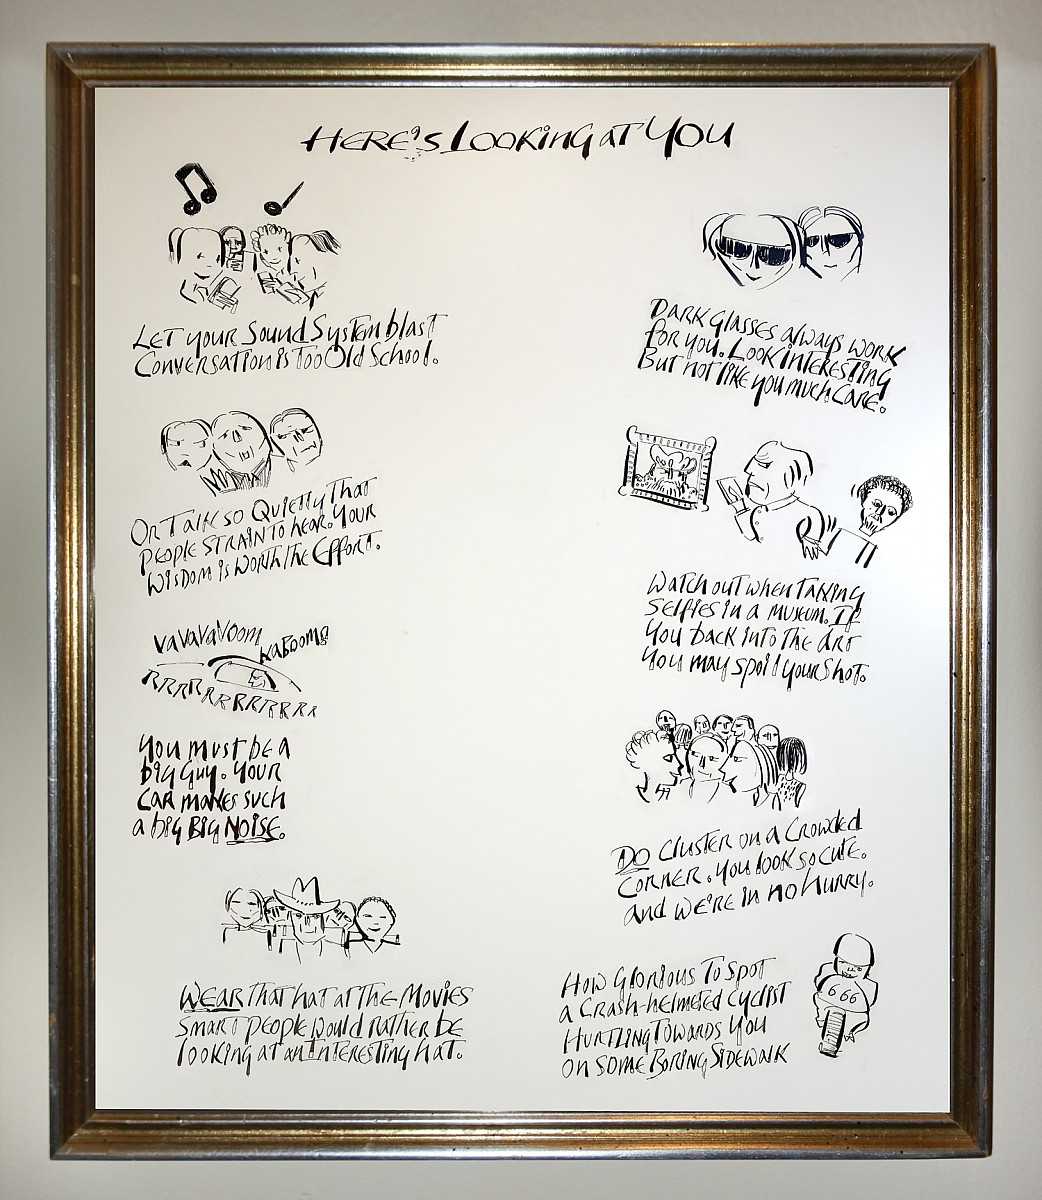 HERE'S LOOKING AT YOU
LET your Sound System blast
Conversation is Too Old School.
Or Talk so Quietly That
People STRAIN TO hear. Your
Wisdom is worth the Effort.
VaVaVaVoom
KaBoom!
RRRRRRRRRRRRR
You must be a
big Guy. Your
Car makes such
a big Big NOISE.
WEAR That hat at The Movies
Smart people would rather be
looking at an Interesting hat.
DARK Glasses always work
for you. Look interesting
But not like you much Care.
Watch out when Taking
Selfies in a museum. If
You back into The Art
You may spoil your Shot.
DO Cluster on a Crowded
Corner. You look so cute.
and we're in no Hurry.
How Glorious To Spot
a Crash-helmeted Cyclist
Hurtling Towards You
On some Boring Sidewalk
666